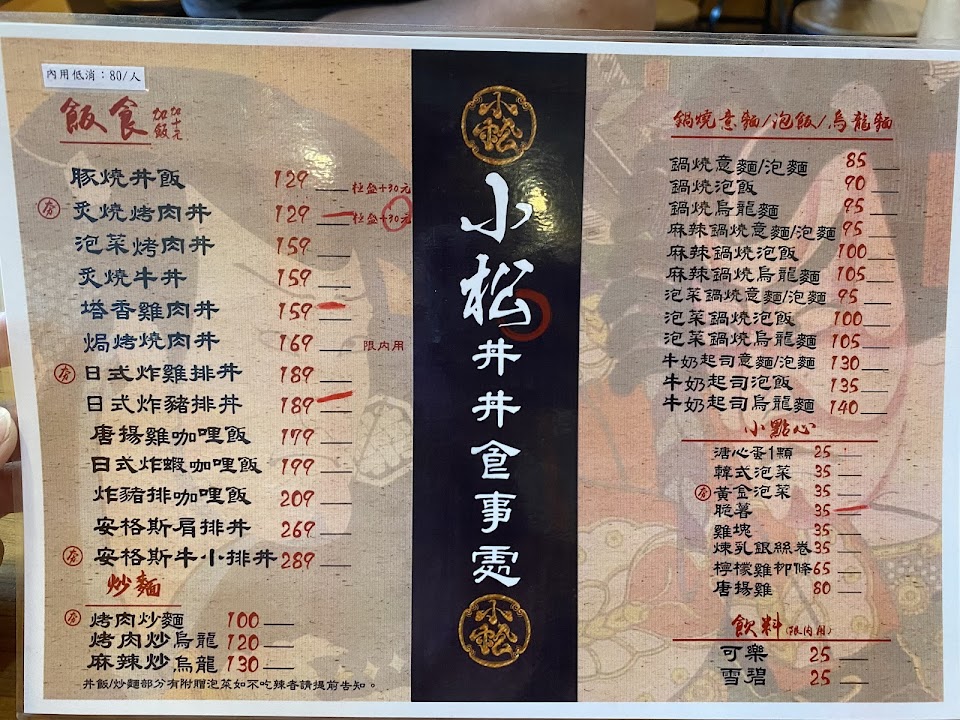 內用低消：80/人
飯食 加飯加十元
豚燒丼飯 129 ___ 極盛+30元
炙燒烤肉丼 129 ___ 極盛+30元
泡菜烤肉丼 159 ___
炙燒牛丼 159 ___
塔香雞肉丼 159 ___
焗烤燒肉丼 169 ___ 限內用
日式炸雞排丼 189 ___
日式炸豬排丼 189 ___
唐揚雞咖哩飯 179 ___
日式炸蝦咖哩飯 199 ___
炸豬排咖哩飯 209 ___
安格斯肩排丼 269 ___
安格斯牛小排丼 289 ___
炒麵
烤肉炒麵 100 ___
烤肉炒烏龍 120 ___
麻辣炒烏龍 130 ___
丼飯/炒麵部分有附贈泡菜如不吃辣者請提前告知。
小松
小松丼丼食事處
小松
鍋燒意麵/泡飯/烏龍麵
鍋燒意麵/泡麵 85 ___
鍋燒泡飯 90 ___
鍋燒烏龍麵 95 ___
麻辣鍋燒意麵/泡麵 95 ___
麻辣鍋燒泡飯 100 ___
麻辣鍋燒烏龍麵 105 ___
泡菜鍋燒意麵/泡麵 95 ___
泡菜鍋燒泡飯 100 ___
泡菜鍋燒烏龍麵 105 ___
牛奶起司意麵/泡麵 130 ___
牛奶起司泡飯 135 ___
牛奶起司烏龍麵 140 ___
小點心
溏心蛋1顆 25 ___
韓式泡菜 35 ___
黃金泡菜 35 ___
脆薯 35 ___
雞塊 35 ___
煉乳銀絲卷 35 ___
檸檬雞柳條 65 ___
唐揚雞 80 ___
飲料(限內用)
可樂 25 ___
雪碧 25 ___